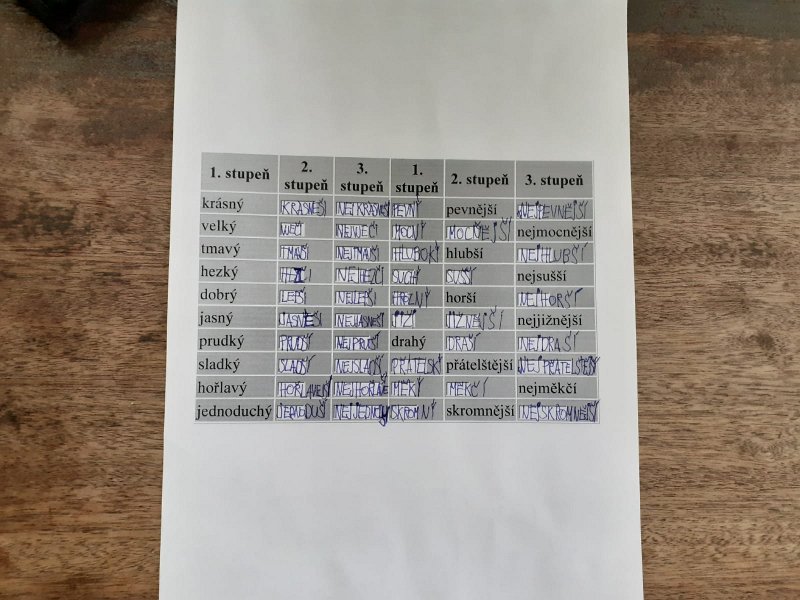 1. stupeň 2. stupeň 3. stupeň 1. stupeň 2. stupeň 3. stupeň
krásný KRASNEŠI NEJKRASNEŠI PEVNÝ pevnější NEJPEVNĚJŠÍ
velký VJEČI NEJVJEČI MOCNÝ MOCNĚJŠÍ nejmocnější
tmavý TMAŠI NEJTMAŠI HLUBOKÝ hlubší NEJHLUBŠÍ
hezký NEJHEZČI SUCHÝ SUŠŠÍ nejsušší
dobrý LEPŠI NEJLEPŠI HROZNÝ horší NEJHORŠÍ
jasný JASNEŠI NEJJASNEŠI JIŽNÍ JIŽNĚJŠÍ nejjižnější
prudký PRUDŠÍ NEJPRUŠÍ drahý DRAŠÍ NEJDRAŠÍ
sladký SLADŠÍ NEJSLADŠÍ PŘÁTELSKÝ přátelštější NEJPŘÁTELŠTĚJŠÍ
hořlavý HOŘLAVEJŠÍ MĚKÝ MĚKČÍ nejměkčí
jednoduchý JEDNODUŠÍ SKROMNÝ skromnější NEJSKROMNĚJŠÍ